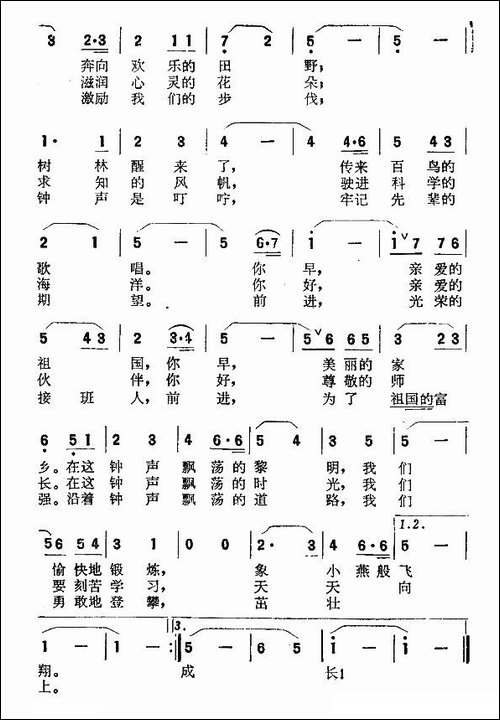 3 2·3 | 2 1 1 | 7 2 | 5 — | 5 — |
奔向 欢 乐的 田 野；
滋润 心 灵的 花 朵；
激励 我 们的 步 伐；
1· 1 | 2 3 | 4 — | 4 4·6 | 5 4 3 |
树 林 醒 来 了， 传来 百 鸟的
求 知 的 风 帆， 驶进 科 学的
钟 声 是 叮 咛， 牢记 先 辈的
2 1 | 5 — | 5 6·7 | 1 — | 1 ∨ 7 7 6 |
歌 唱。 你 早， 亲 爱的
海 洋。 你 好， 亲 爱的
期 望。 前 进， 光 荣的
5 4 3 | 2 3·4 | 2 — | 5 ∨ 6 6 5 | 3 2 3 |
祖 国，你 早， 美 丽的 家
伙 伴，你 好， 尊 敬的 师
接 班 人，前 进， 为 了 祖国的富
6 5 1 | 2 3 | 4 6·6 | 5 4 | 3· 1 | 5 — |
乡。在这 钟 声 飘 荡的 黎 明，我 们
长。在这 钟 声 飘 荡的 时 光，我 们
强。沿着 钟 声 飘 荡的 道 路，我 们
1.2.
5 6 5 4 | 3 1 | 0 0 | 2· 3 | 4 6·6 | 5 — |
愉 快地 锻 炼， 象 小 燕般 飞
要 刻苦 学 习， 天 天 向
勇 敢地 登 攀， 茁 壮
3.
1 — | 1 — :| 5 — | 6 — | 1 — | 1 — ‖
翔。 成 长！
上。